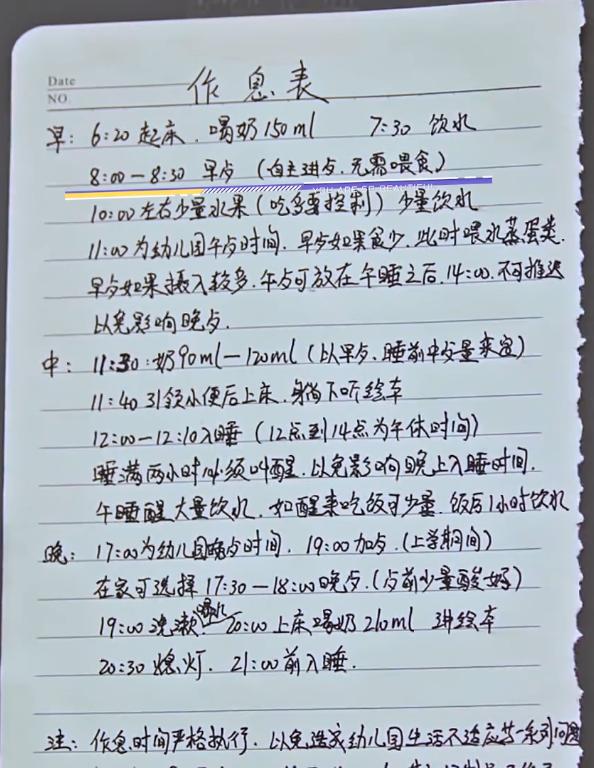 Date
NO.
作息表
早: 6:20 起床、喝奶 150ml 7:30 饮水
8:00-8:30 早歺 (自主进歺, 无需喂食)
YOU ARE SO BEAUTIFUL
10:00左右少量水果(吃多要控制) 少量饮水
11:00为幼儿园午歺时间, 早歺如果食少, 此时喂水蒸蛋类.
早歺如果摄入较多, 午歺可放在午睡之后, 14:00, 不可推迟
以免影响晚歺.
中: 11:30:奶90ml-120ml (以早歺、睡前中歺量来定)
11:40 引领小便后上床, 躺下听绘本
12:00-12:10入睡 (12点到14点为午休时间)
睡满两小时必须叫醒, 以免影响晚上入睡时间.
午睡醒大量饮水, 如醒来吃饭可少量, 饭后1小时饮水
晚: 17:00为幼儿园晚歺时间, 19:00加歺, (上学期间)
在家可选择 17:30-18:00晚歺, (歺前少量酸奶)
19:00 洗漱 20:00 上床喝奶 210ml 讲绘本
20:30 熄灯, 21:00前入睡.
注: 作息时间严格执行, 以免造成幼儿园生活不适应等一系列问题